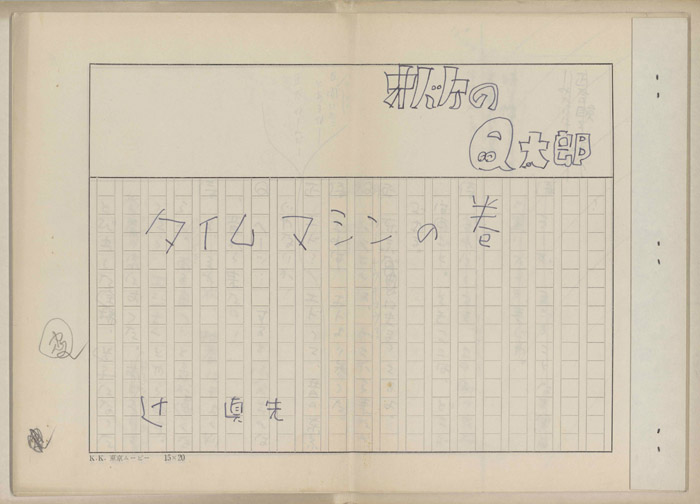 オバケの
Q太郎
タイムマシンの巻
辻 真先
K.K. 東京ムービー 15×20